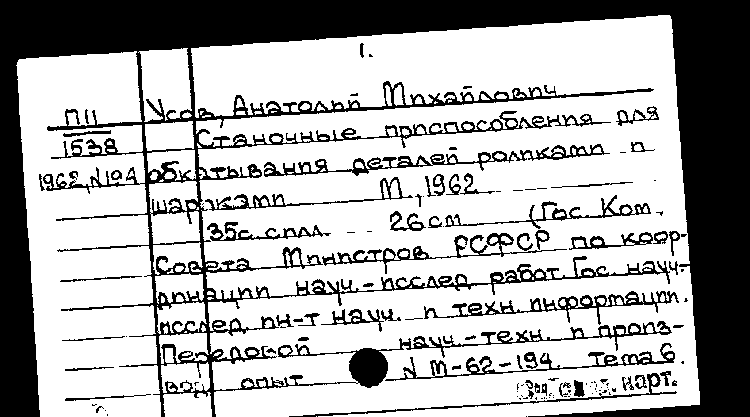 1.
П11 Усов, Анатолий Михайлович
1538 Станочные приспособления для
1962, N194 обкатывания деталей роликами и
шариками М., 1962
35с. с илл. 26 см (Гос. Ком.
Совета Министров РСФСР по коор-
динации науч.-исслед. работ. Гос. науч.-
исслед. ин-т науч. и техн. информации.
Передовой науч.-техн. и произ-
вод. опыт N М-62-194. Тема 6.
карт.